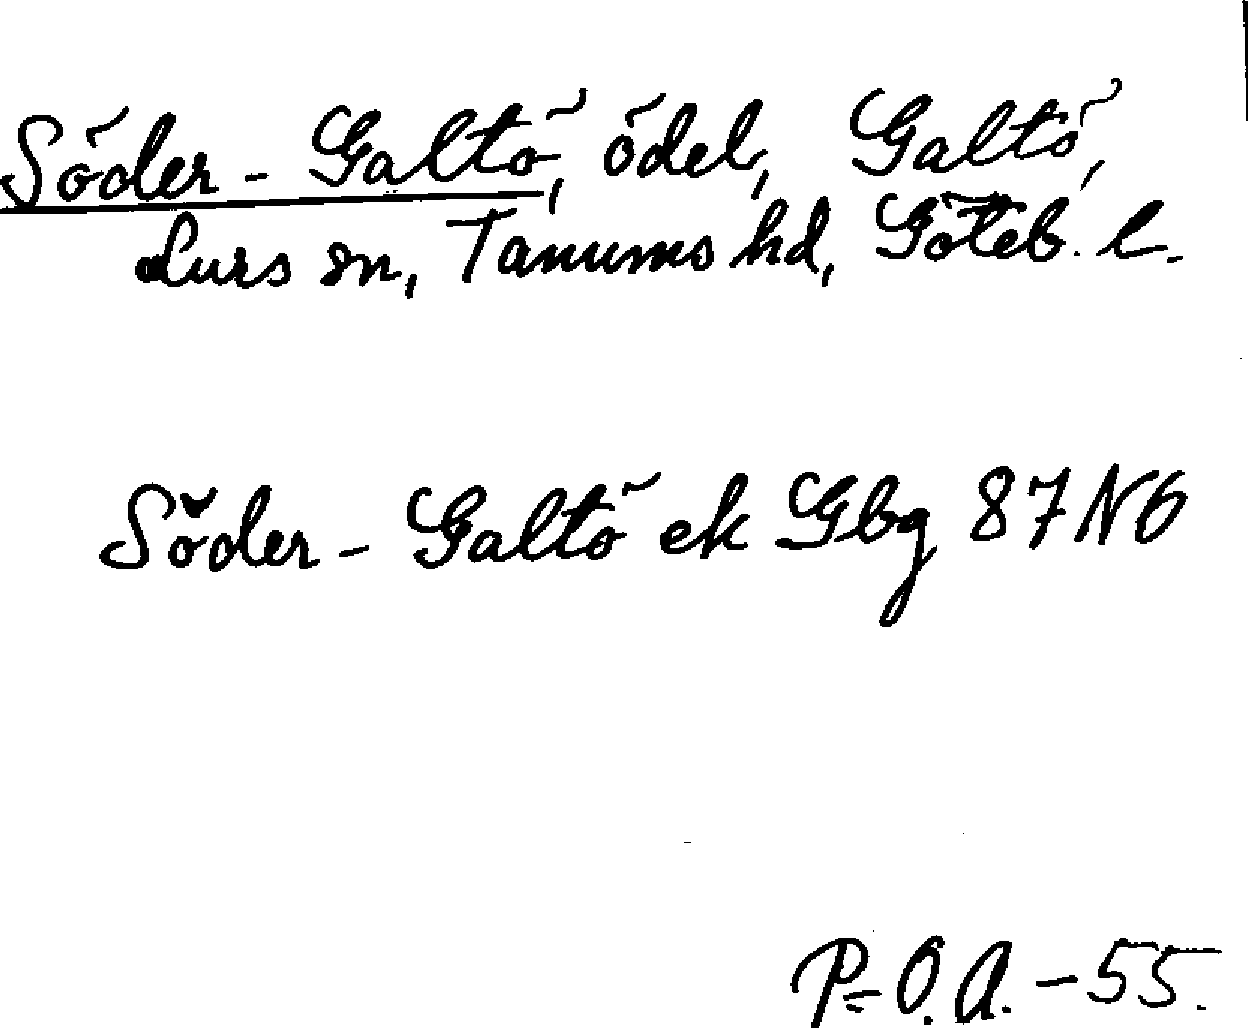 Söder-Galtö, ödel, Galtö,
Lurs sn, Tanums hd, Göteb. l.
Söder-Galtö ek Gbg 87 NO
P=O.A.-55.